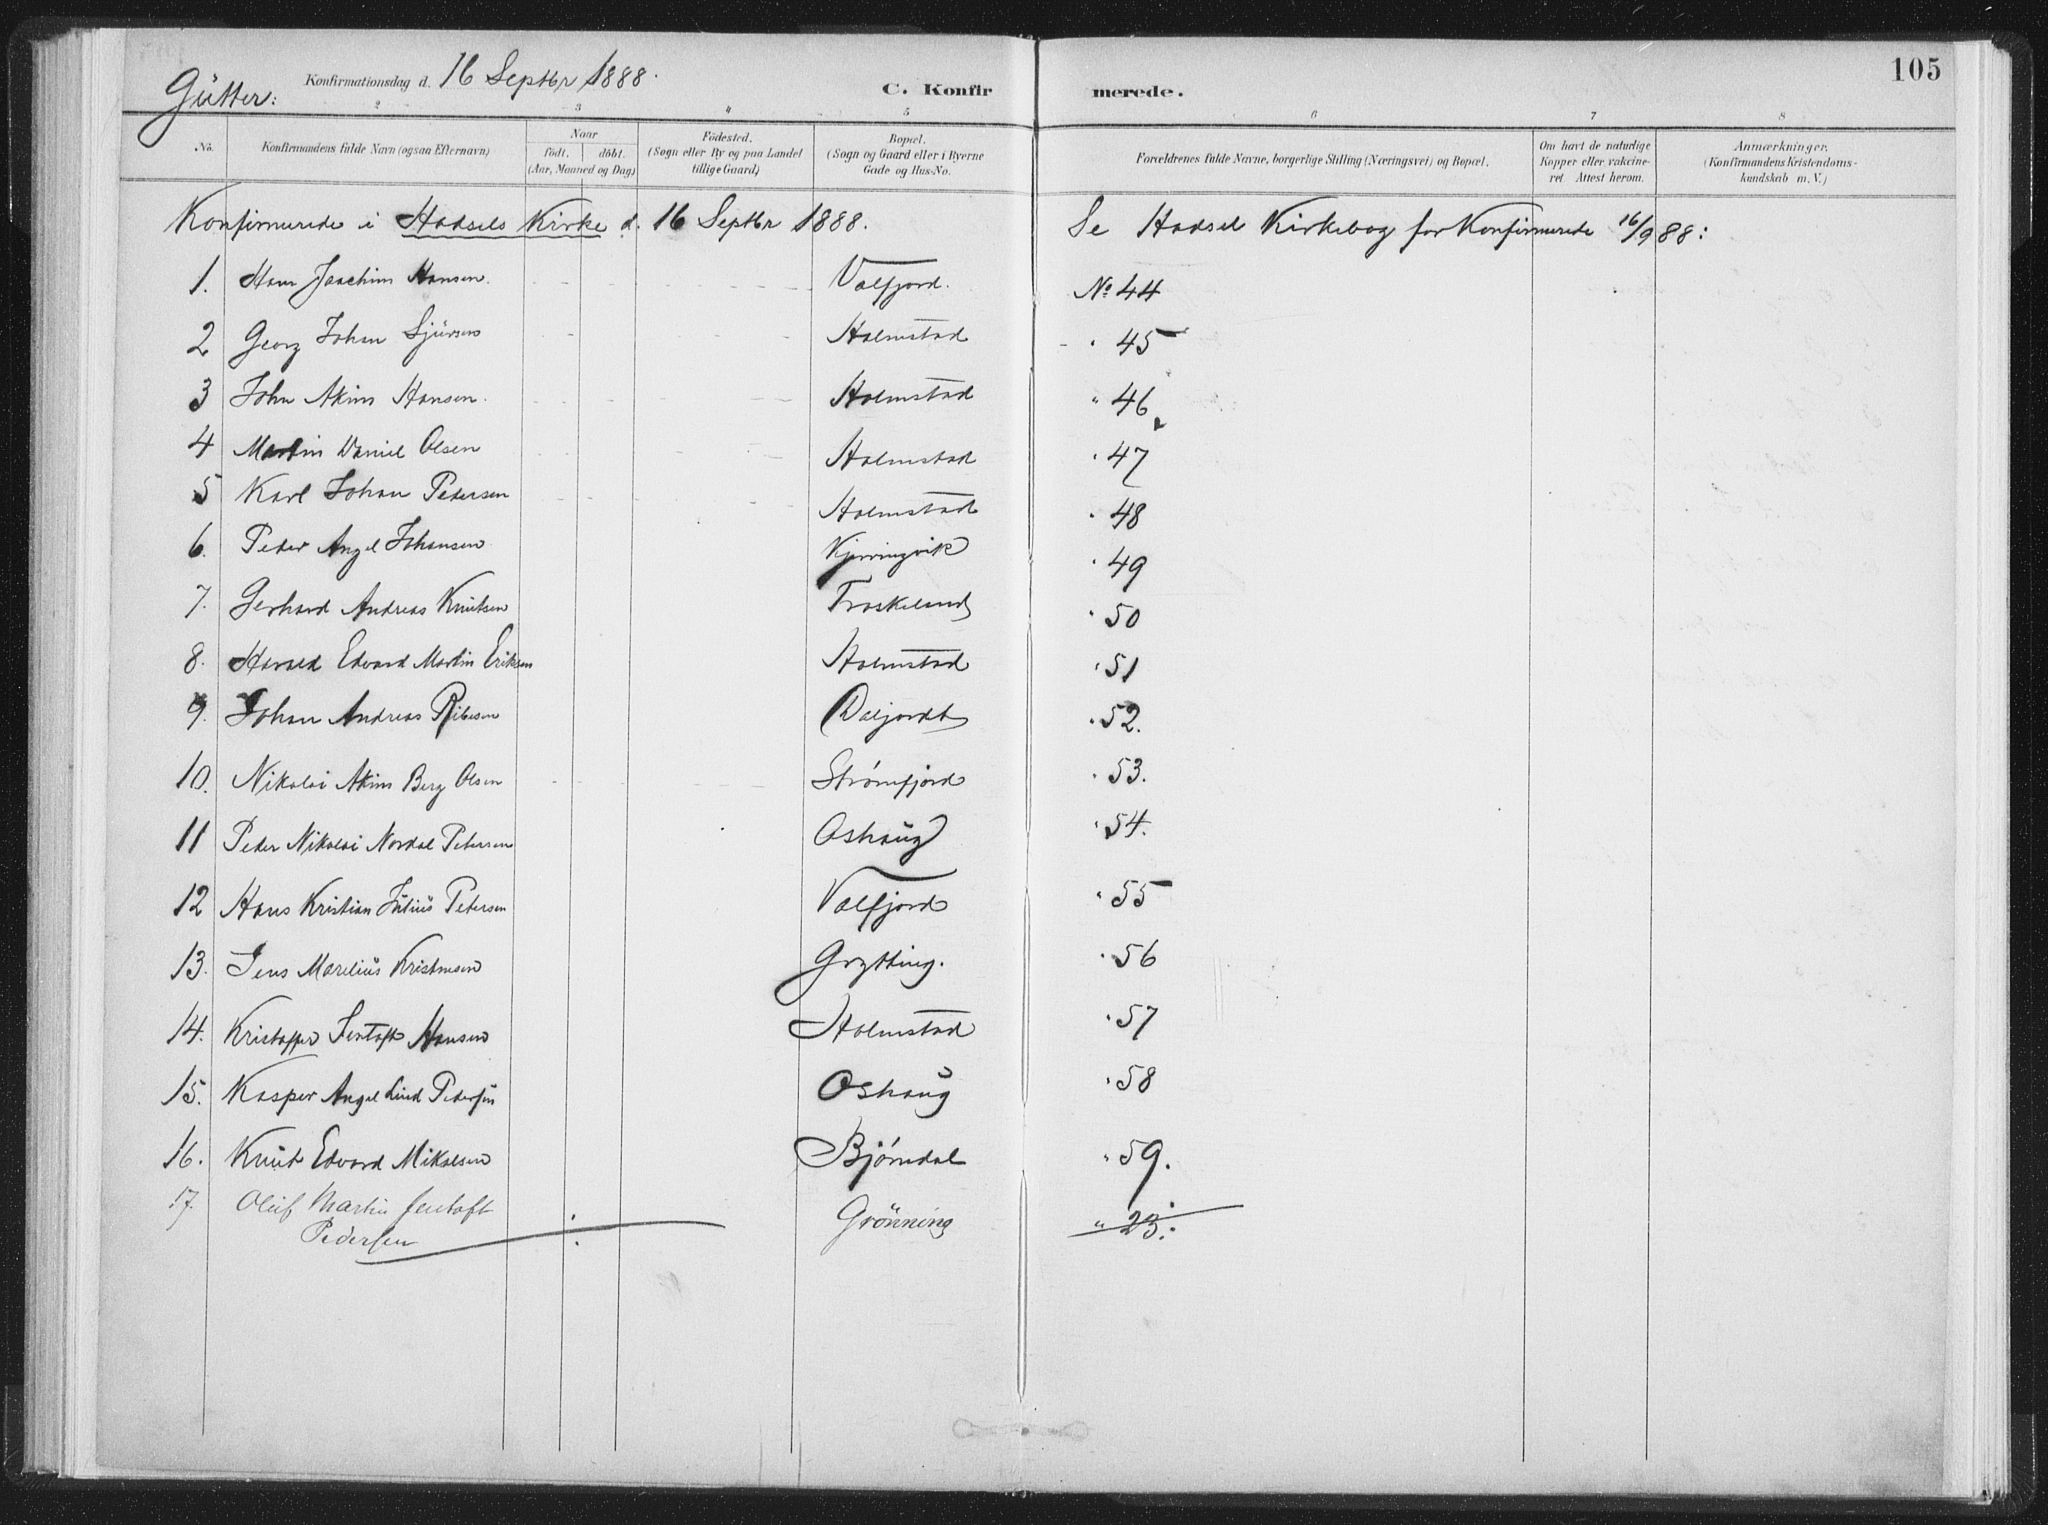 105
Gütter: Konfirmationsdag d. 16 Septbr 1888.
C. Konfirmerede.
2 3 4 5 6 7 8
No. Konfirmandens fulde Navn (ogsaa Efternavn) Naar födt. döbt. (Aar, Maaned og Dag) Födested. (Sogn eller By og paa Landet tillige Gaard) Bopæl. (Sogn og Gaard eller i Byerne Gade og Hus-No. Forældrenes fulde Navne, borgerlige Stilling (Næringsvei) og Bopæl. Om havt de naturlige Kopper eller vakcineret. Attest herom. Anmærkninger. (Konfirmandens Kristendomskundskab m. V.)
Konfirmerede i Hadsels Kirke d. 16 Septbr 1888. Se Hadsel Kirkebog for Konfirmerede 16/9 88:
1. Hans Joachim Hansen. Valfjord. No 44
2 Georg Johan Sjursen Holmstad " 45
3 John Akim Hansen. Holmstad " 46
4 Martin Daniel Olsen Holmstad " 47
5 Karl Johan Pedersen Holmstad " 48
6. Peder Angel Johansen Kjerringvik " 49
7. Gerhard Andreas Knutsen Fraskeland " 50
8. Harald Edvard Martin Eriksen Holmstad " 51
9. Johan Andreas Ribesen Daljordt " 52.
10. Nikolai Akim Berg Olsen Strømfjord " 53.
11 Peder Nikolai Nordal Petersen Oshaug " 54.
12 Hans Kristian Julius Petersen Valfjord " 55
13. Jens Marelius Kristensen Grytting. " 56
14. Kristoffer Jentoft Hansen Holmstad " 57
15. Kasper Angel Lind Pedersen Oshaug " 58
16. Knut Edvard Mikalsen Bjørndal " 59.
17. Oluf Martin Jentoft Grönning " 23.
Pedersen